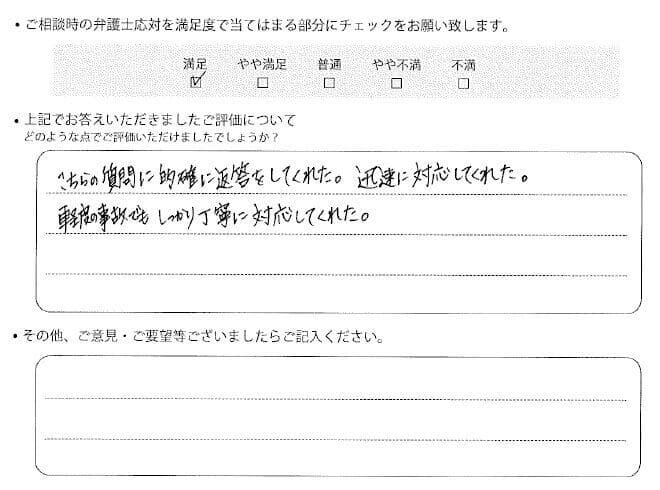 ・ご相談時の弁護士応対を満足度で当てはまる部分にチェックをお願い致します。
満足 やや満足 普通 やや不満 不満
☑ ☐ ☐ ☐ ☐
・上記でお答えいただきましたご評価について
どのような点でご評価いただけましたでしょうか？
こちらの質問に的確に返答をしてくれた。迅速に対応してくれた。
軽度の事故でもしっかり丁寧に対応してくれた。
・その他、ご意見・ご要望等ございましたらご記入ください。